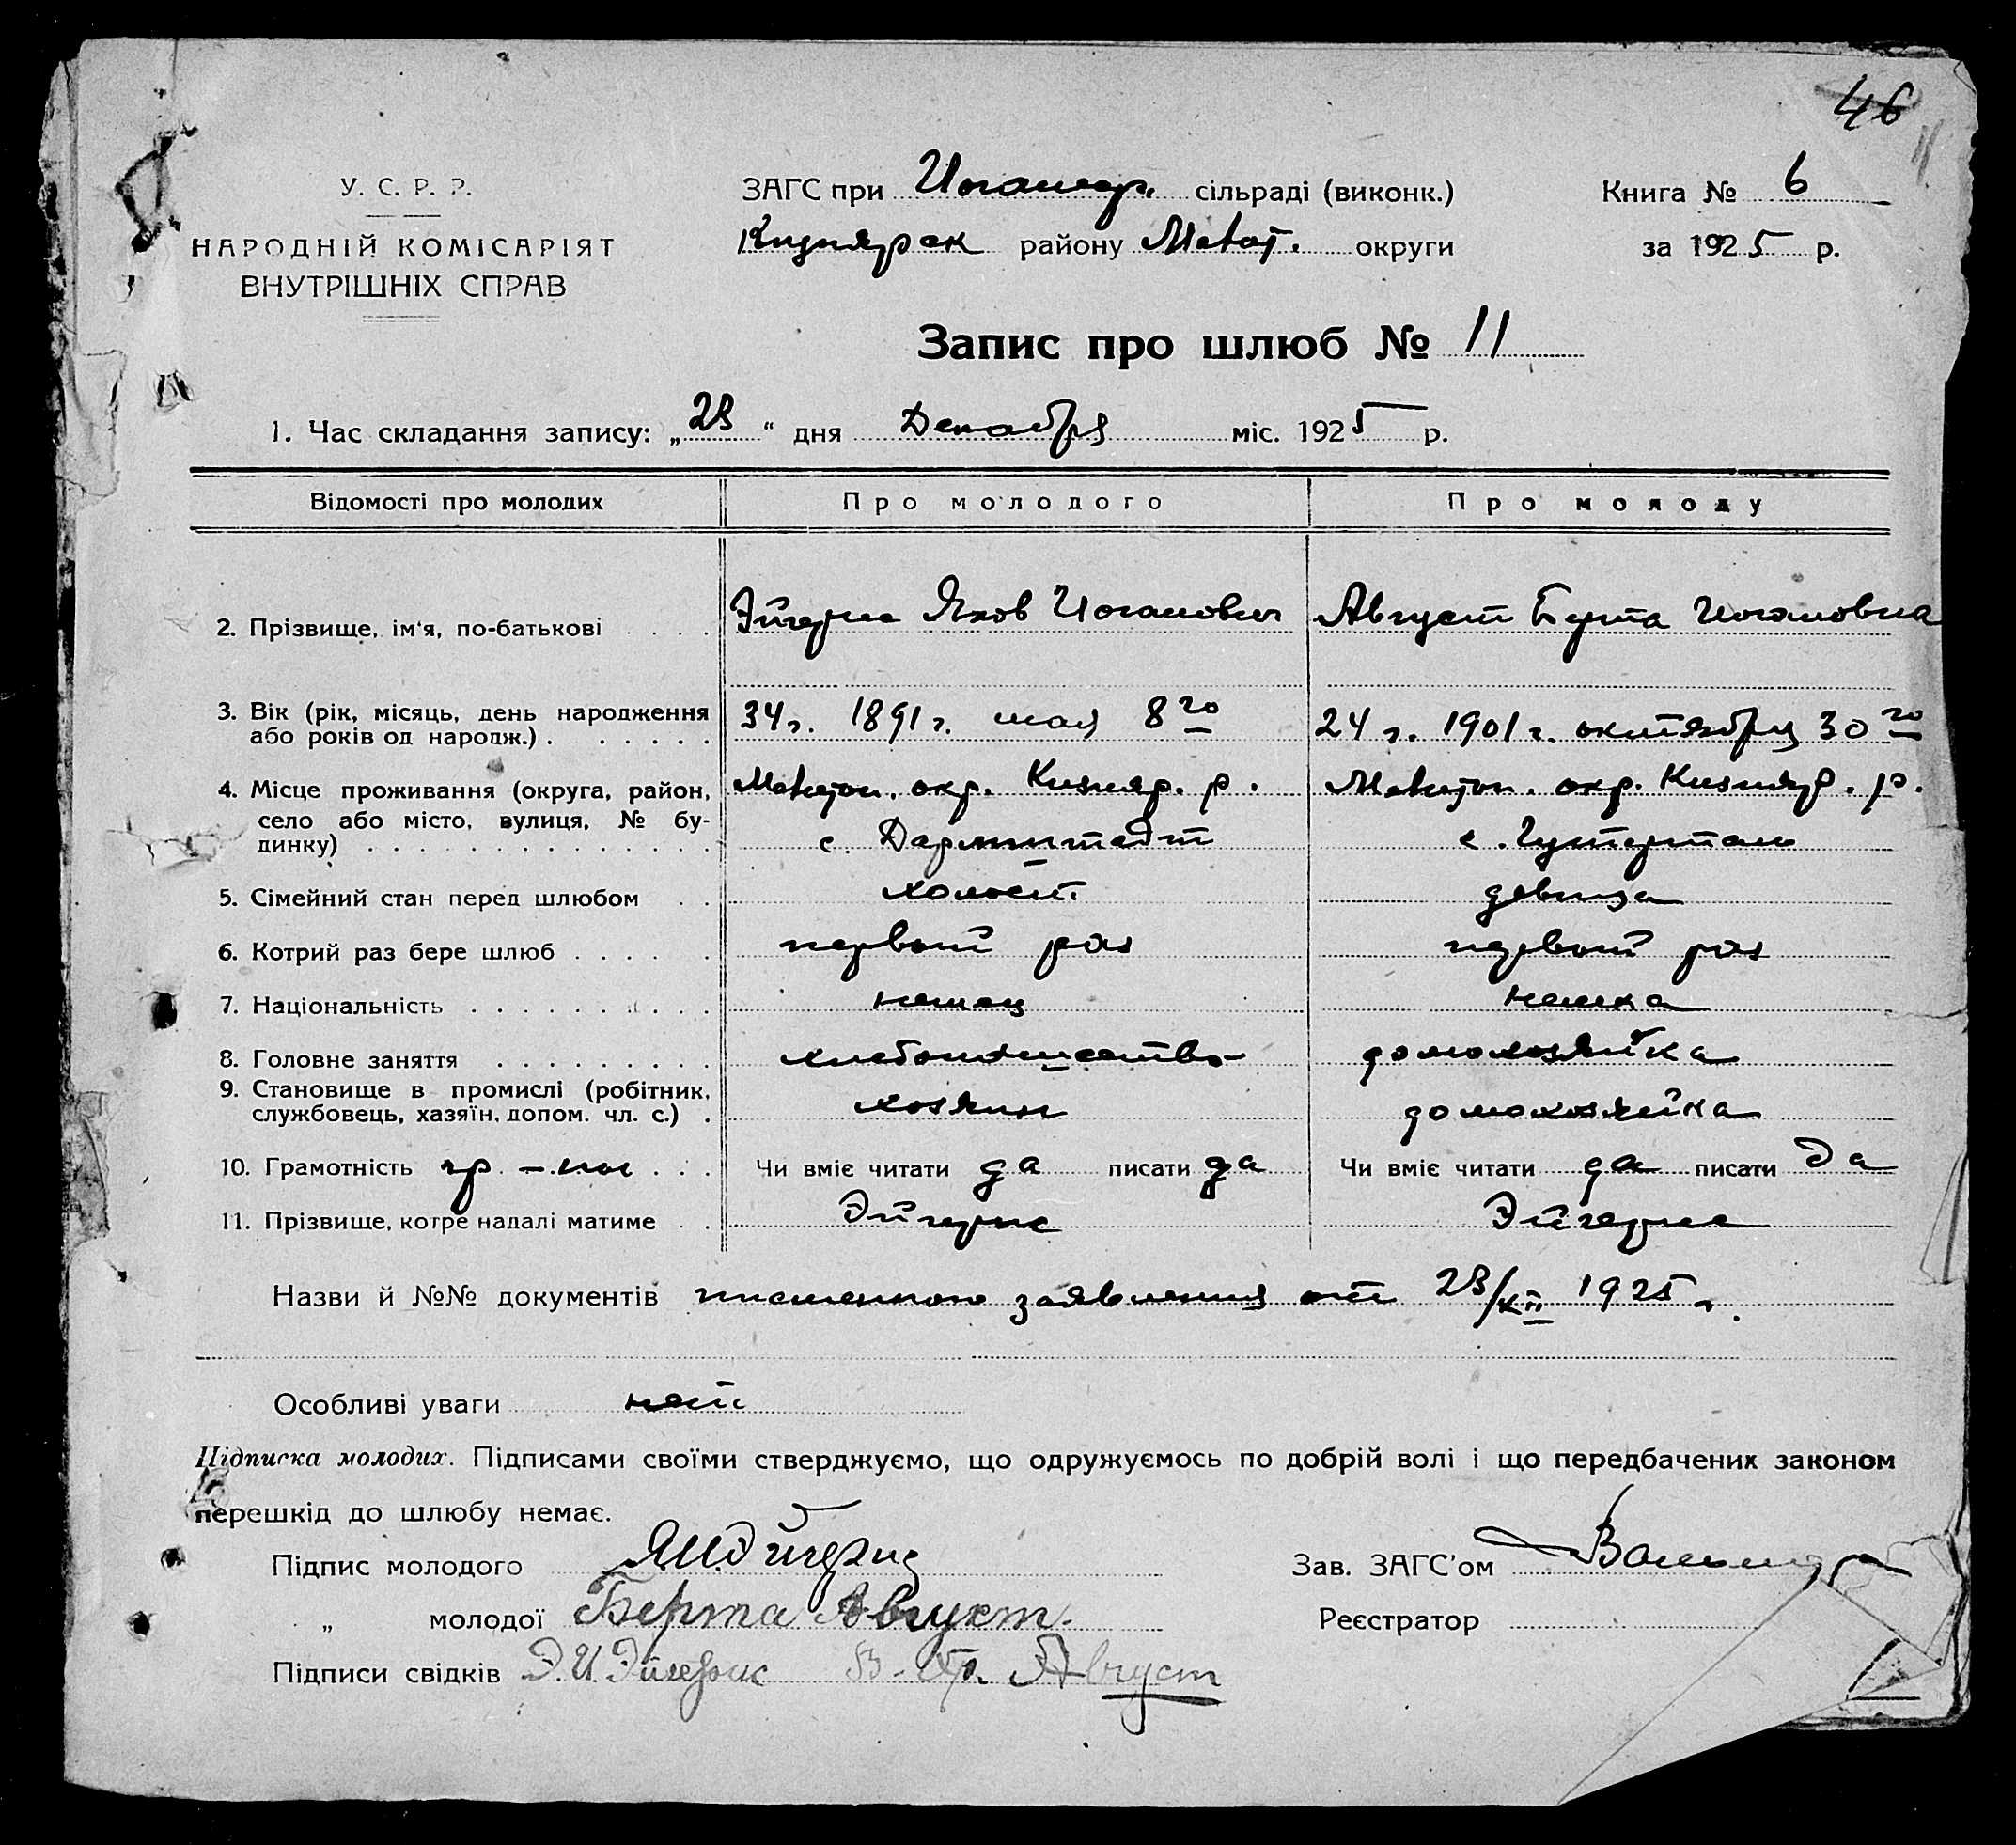 46
11
У. С. Р. Р.
НАРОДНІЙ КОМІСАРІЯТ
ВНУТРІШНІХ СПРАВ
ЗАГС при Иоганнер. сільраді (виконк.)
Кизиярск району Мелит. округи
Книга № 6
за 1925 р.
Запис про шлюб № 11
1. Час складання запису: „23“ дня Декабря міс. 1925 р.
Відомості про молодих Про молодого Про молоду
2. Прізвище, ім'я, по-батькові . . . . Эйгерис Яков Иоганович Август Берта Иогановна
3. Вік (рік, місяць, день народження 34 г. 1891 г. мая 8го 24 г. 1901 г. октября 30го
або років од народж.) . . . . . .
4. Місце проживання (округа, район, Мелитоп. окр. Кизияр. р. Мелитоп. окр. Кизияр. р.
село або місто, вулиця, № бу- с. Дармштадт с. Гутерталь
динку) . . . . . . . . . . . . . .
5. Сімейний стан перед шлюбом . . холост девица
6. Котрий раз бере шлюб . . . . . первый раз первый раз
7. Національність . . . . . . . . . . немец немка
8. Головне заняття . . . . . . . . . хлебопашество домохозяйка
9. Становище в промислі (робітник, хозяин домохозяйка
службовець, хазяїн, допом. чл. с.) .
10. Грамотність гр . . . Чи вміє читати да писати да Чи вміє читати да писати да
11. Прізвище, котре надалі матиме . . Эйгерис Эйгерис
Назви й №№ документів письменного заявления от 23/XII 1925 г.
Особливі уваги нет
Підписка молодих. Підписами своїми стверджуємо, що одружуємось по добрій волі і що передбачених законом
перешкід до шлюбу немає.
Підпис молодого ЯИЭйгерис Зав. ЗАГС'ом
„ молодої Берта Август. Реєстратор
Підписи свідків Э. И. Эйгерис Август